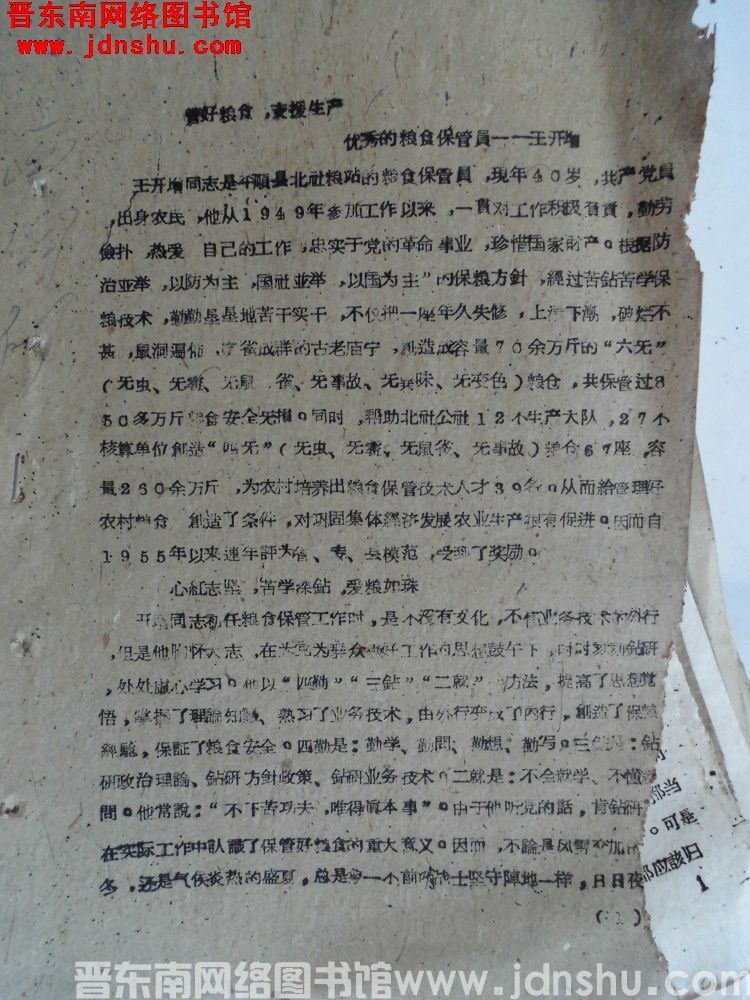 晋东南网络图书馆
www.jdnshu.com
管好粮食,支援生产
优秀的粮食保管員——王开增
王开增同志是平順县北社粮站的粮食保管員,現年40岁,共产党員
,出身农民,他从1949年参加工作以来,一貫对工作积极負責,勤劳
儉扑 热爱 自己的工作,忠实于党的革命事业,珍惜国家財产。根据防
治並举,以防为主,国社並举,以国为主”的保粮方針,經过苦鉆苦学保
粮技术,勤勤垦垦地苦干实干,不仅把一座年久失修,上漏下潮,破烂不
甚,鼠洞遍佈,雀成群的古老庙宇,創造成容量70余万斤的“六无”
(无虫、无霉、无鼠 雀、无事故、无異味、无变色)粮仓,共保管过8
50多万斤粮食安全无損。同时,帮助北社公社12个生产大队,27个
核算单位創造“四无”(无虫、无霉、无鼠雀、无事故)粮仓67座,容
量260余万斤,为农村培养出粮食保管技术人才39名。从而給管理好
农村粮食 創造了条件,对巩固集体經济发展农业生产很有促进。因而自
1955年以来連年評为省、专、县模范,受到了奖励。
心紅志坚,苦学深鉆,爱粮如珠
开增同志初任粮食保管工作时,是个沒有文化,不懂业务技术的外行
,但是他胸怀大志,在为党为群众做好工作的思想鼓午下,时时刻刻鉆研
,处处虛心学习。他以“四勤”“三鉆”“二就”的方法,提高了思想觉
悟,掌握了理論知識、熟习了业务技术,由外行变成了內行,創造了保粮
經驗,保証了粮食安全。四勤是:勤学、勤問、勤想、勤写。三鉆是:鉆
研政治理論、鉆研方針政策、鉆研业务技术。二就是:不会就学、不懂就
問。他常說:“不下苦功夫,唯得眞本事”。由于他听党的話,肯鉆研
在实际工作中认識了保管好粮食的重大意义。因而,不論是风雪交加的
冬,还是气候炎热的盛夏,总是象一个前哨战士坚守陣地一样,日日夜
(1)
部当
。可是
部应該归
1
晋东南网络图书馆www.jdnshu.com